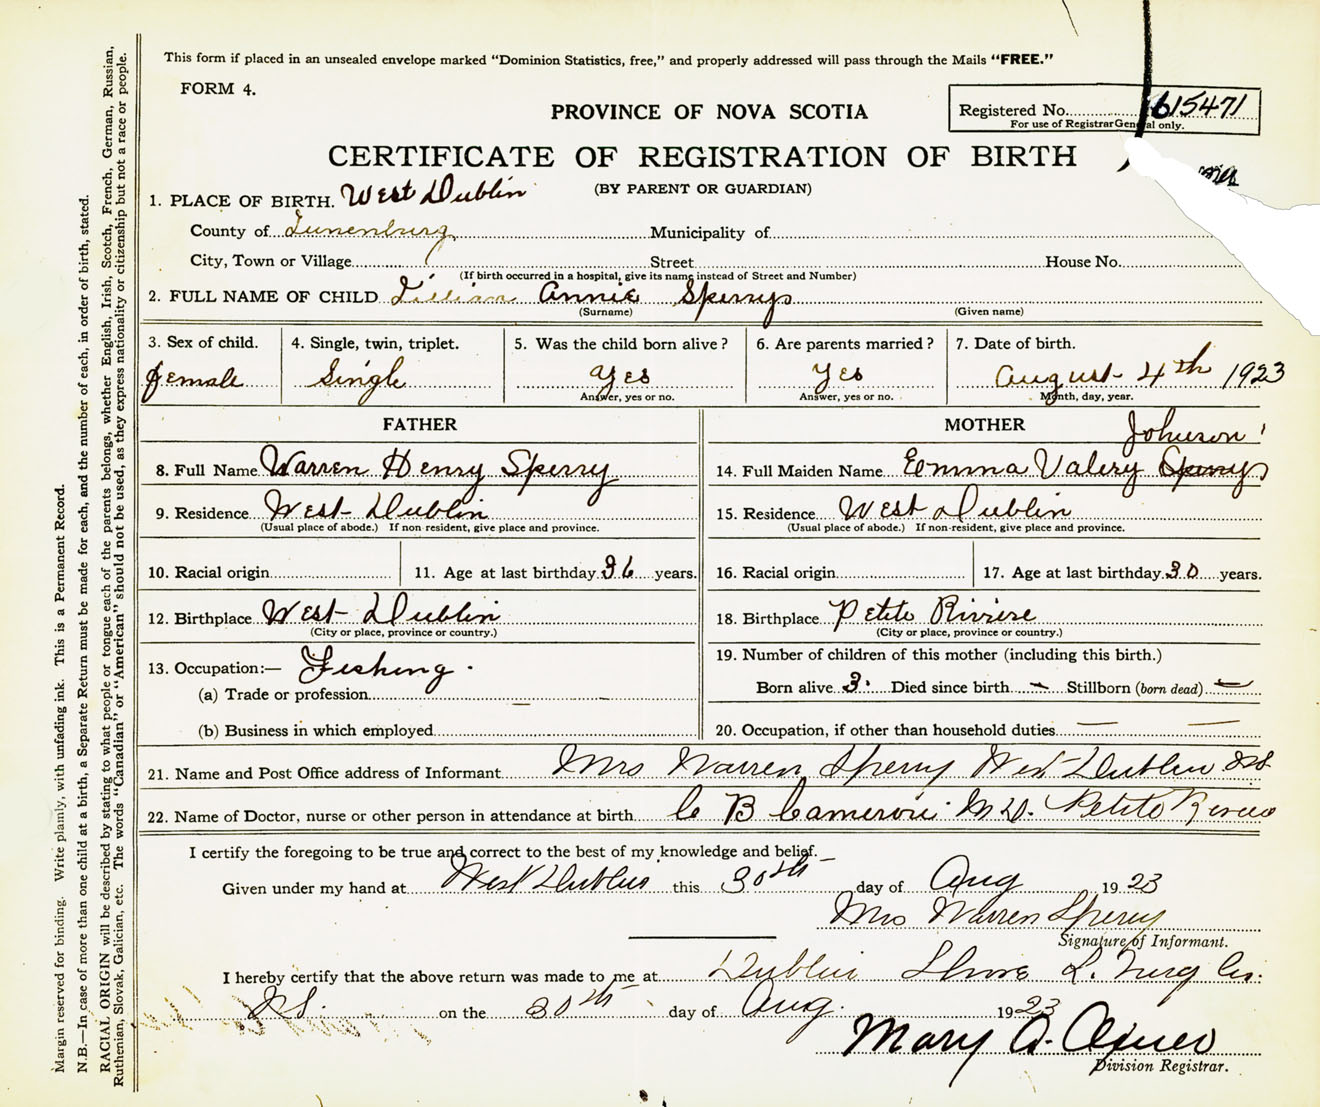 This form if placed in an unsealed envelope marked "Dominion Statistics, free," and properly addressed will pass through the Mails "FREE."
FORM 4.
PROVINCE OF NOVA SCOTIA
Registered No. 615471
For use of Registrar General only.
CERTIFICATE OF REGISTRATION OF BIRTH
(BY PARENT OR GUARDIAN)
1. PLACE OF BIRTH. West Dublin
County of Lunenburg Municipality of
City, Town or Village Street House No.
(If birth occurred in a hospital, give its name instead of Street and Number)
2. FULL NAME OF CHILD Lillian Annie Sperry
(Surname) (Given name)
3. Sex of child. 4. Single, twin, triplet. 5. Was the child born alive? 6. Are parents married? 7. Date of birth.
female Single Yes Yes August 4th 1923
Answer, yes or no. Answer, yes or no. Month, day, year.
FATHER MOTHER
Johnson
8. Full Name Warren Henry Sperry 14. Full Maiden Name Emma Valery Sperry
9. Residence West Dublin 15. Residence West Dublin
(Usual place of abode.) If non-resident, give place and province. (Usual place of abode.) If non-resident, give place and province.
10. Racial origin 11. Age at last birthday 36 years. 16. Racial origin 17. Age at last birthday 30 years.
12. Birthplace West Dublin 18. Birthplace Petite Riviere
(City or place, province or country.) (City or place, province or country.)
13. Occupation:— Fishing. 19. Number of children of this mother (including this birth.)
(a) Trade or profession — Born alive 3. Died since birth — Stillborn (born dead) —
(b) Business in which employed 20. Occupation, if other than household duties — —
21. Name and Post Office address of Informant Mrs Warren Sperry West Dublin N.S.
22. Name of Doctor, nurse or other person in attendance at birth C B Cameron M D. Petite Riviere
I certify the foregoing to be true and correct to the best of my knowledge and belief.
Given under my hand at West Dublin this 30th day of Aug 1923
Mrs Warren Sperry
Signature of Informant.
I hereby certify that the above return was made to me at Dublin Shore Co.
N.S. on the 30th day of Aug. 1923
Mary A.
Division Registrar.
Margin reserved for binding. Write plainly, with unfading ink. This is a Permanent Record.
N.B.—In case of more than one child at a birth, a Separate Return must be made for each, and the number of each, in order of birth, stated.
RACIAL ORIGIN will be described by stating to what people or tongue each of the parents belongs, whether English, Irish, Scotch, French, German, Russian,
Ruthenian, Slovak, Galician, etc. The words "Canadian" or "American" should not be used, as they express nationality or citizenship but not a race or people.